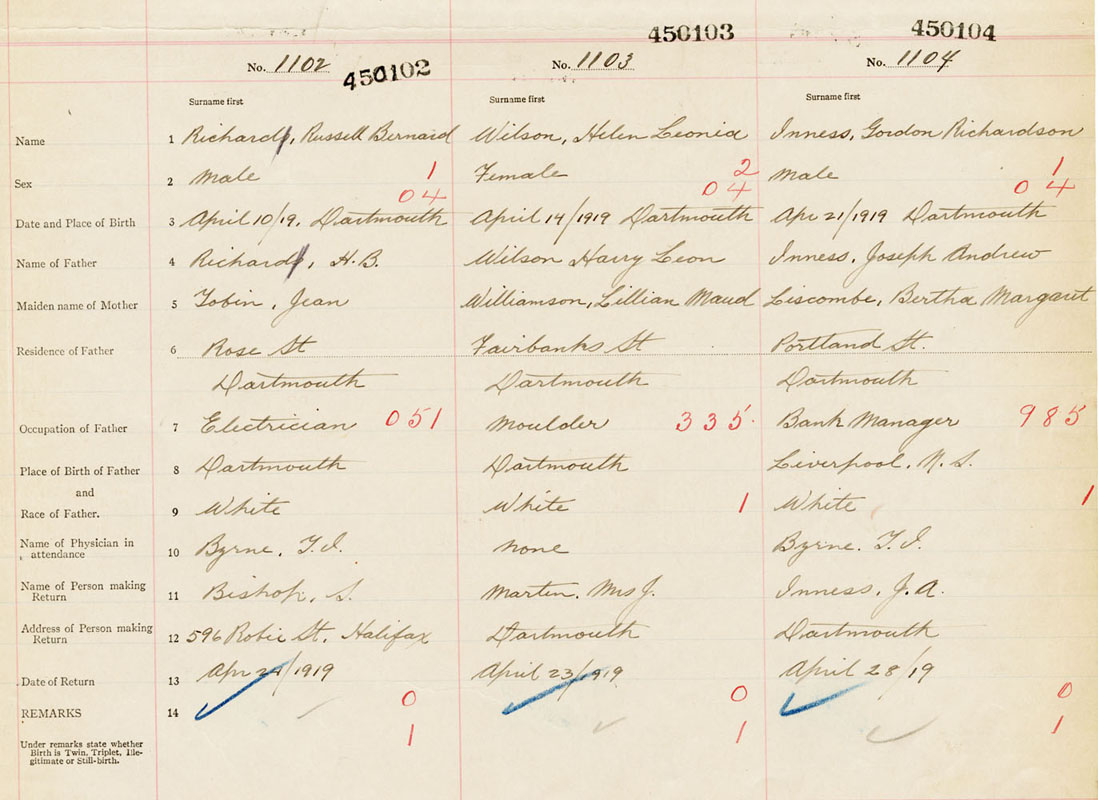 450103 450104
No. 1102 450102 No. 1103 No. 1104
Surname first Surname first Surname first
Name 1 Richard, Russell Bernard Wilson, Helen Leonia Inness, Gordon Richardson
Sex 2 Male 1 Female 2 Male 1
04 04 04
Date and Place of Birth 3 April 10/19. Dartmouth April 14/1919 Dartmouth Apr 21/1919 Dartmouth
Name of Father 4 Richard, H.B. Wilson Harry Leon Inness, Joseph Andrew
Maiden name of Mother 5 Tobin, Jean Williamson, Lillian Maud Liscombe, Bertha Margaret
Residence of Father 6 Rose St Fairbanks St Portland St.
Dartmouth Dartmouth Dartmouth
Occupation of Father 7 Electrician 051 Moulder 335 Bank Manager 985
Place of Birth of Father 8 Dartmouth Dartmouth Liverpool, N.S.
and
Race of Father. 9 White White 1 White 1
Name of Physician in
attendance 10 Byrne, T.I. none Byrne. T.I.
Name of Person making
Return 11 Bishop, S. Martin. Mrs J. Inness, J.A.
Address of Person making
Return 12 596 Robie St. Halifax Dartmouth Dartmouth
Date of Return 13 Apr /1919 April 23/1919 April 28/19
REMARKS 14 0 0 0
1 1 1
Under remarks state whether
Birth is Twin, Triplet, Ille-
gitimate or Still-birth.